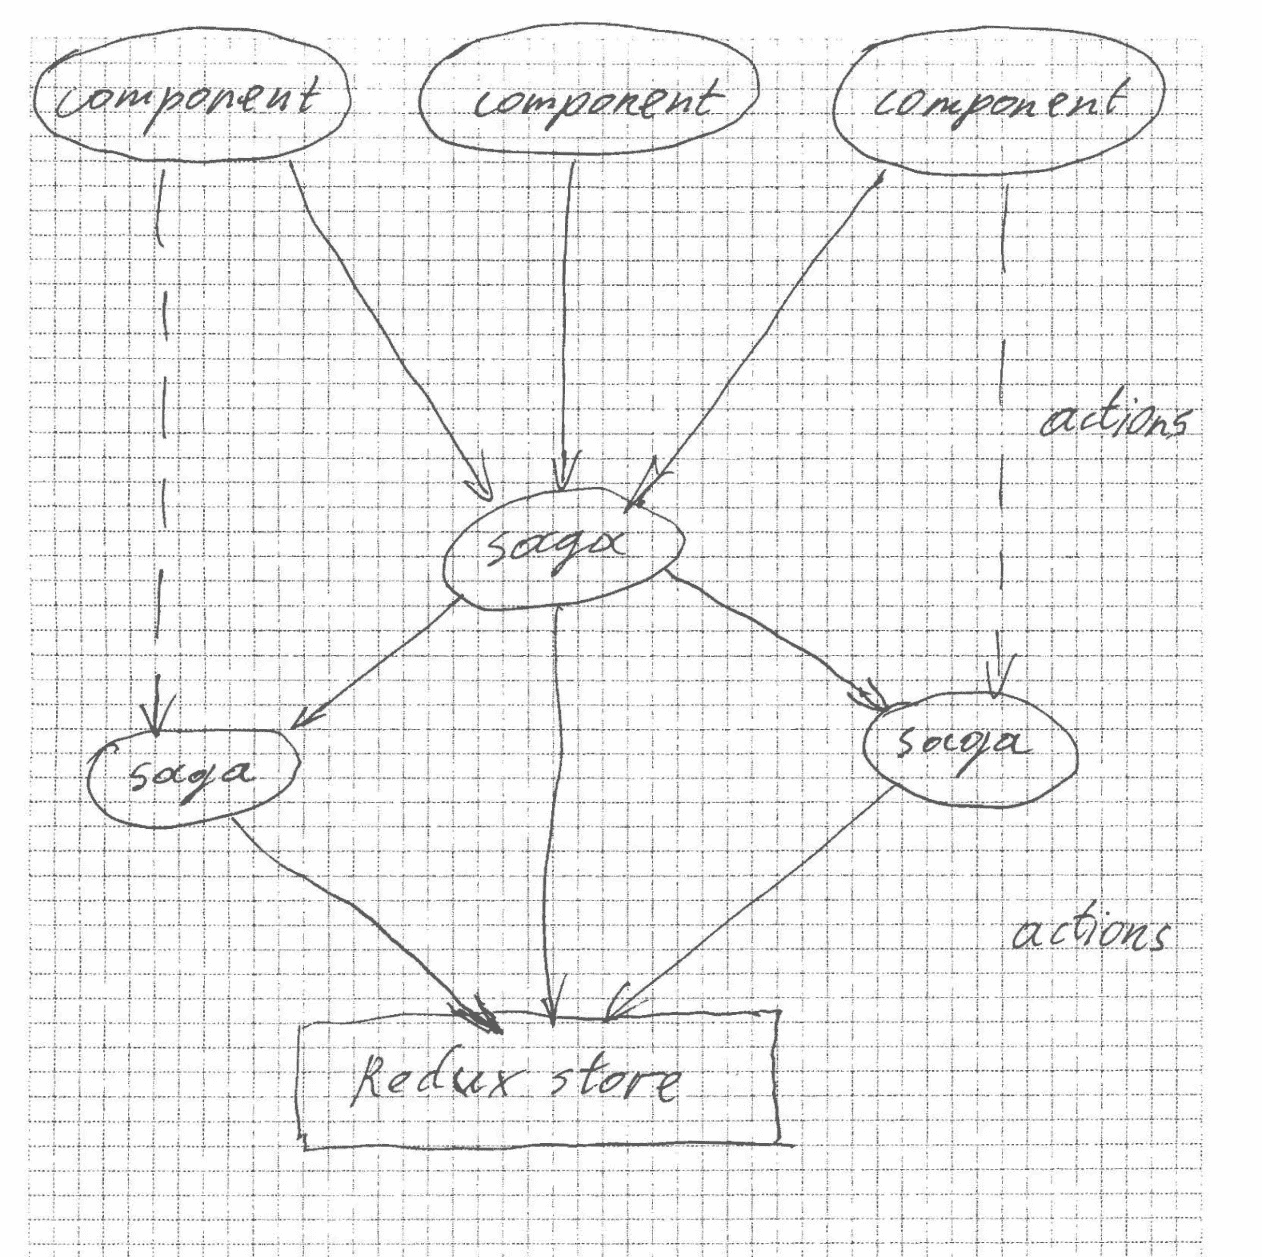 component
component
component
actions
saga
saga
saga
actions
Redux store